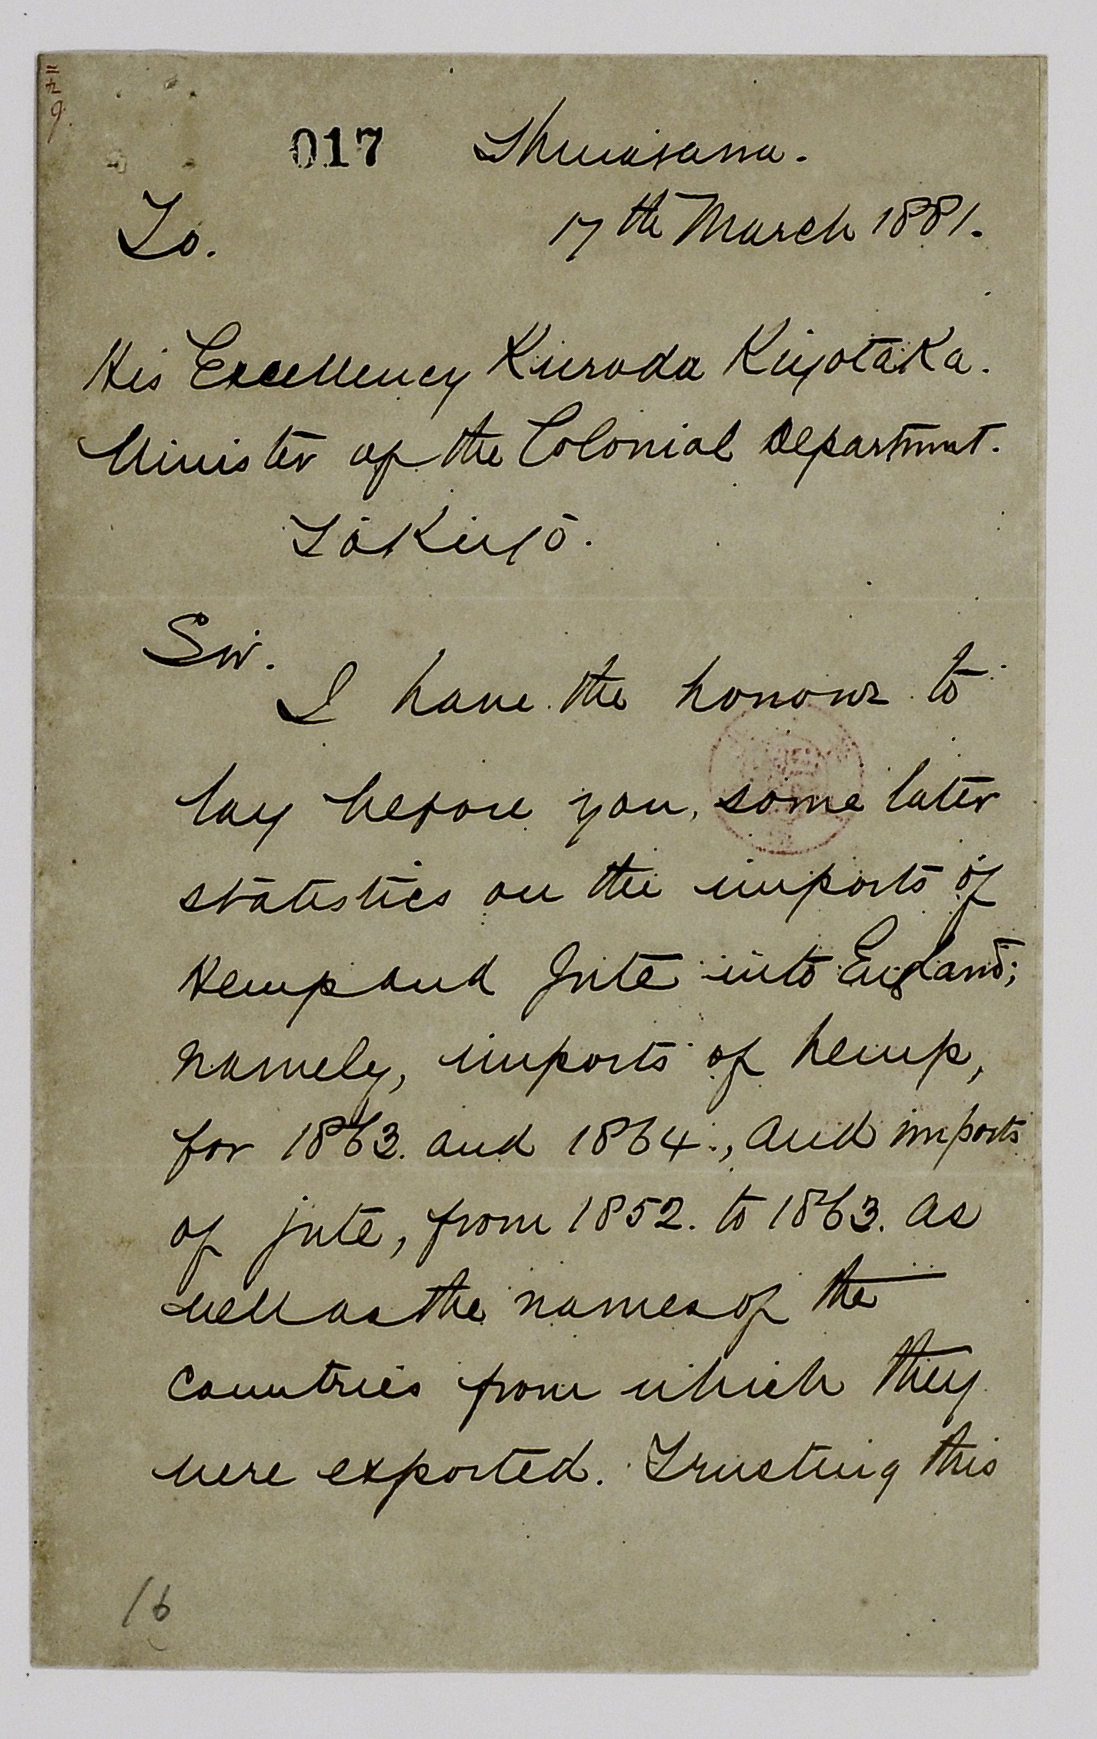 017 Shinagawa.
To. 17th March 1881.
His Excellency Kuroda Kiyotaka.
Minister of the Colonial Department.
Tōkiyō.
Sir.
I have the honour to
lay before you, some later
statistics on the imports of
Hemp and Jute into England;
namely, imports of hemp,
for 1863. and 1864., and imports
of jute, from 1852. to 1863. as
well as the names of the
countries from which they
were exported. Trusting this
16